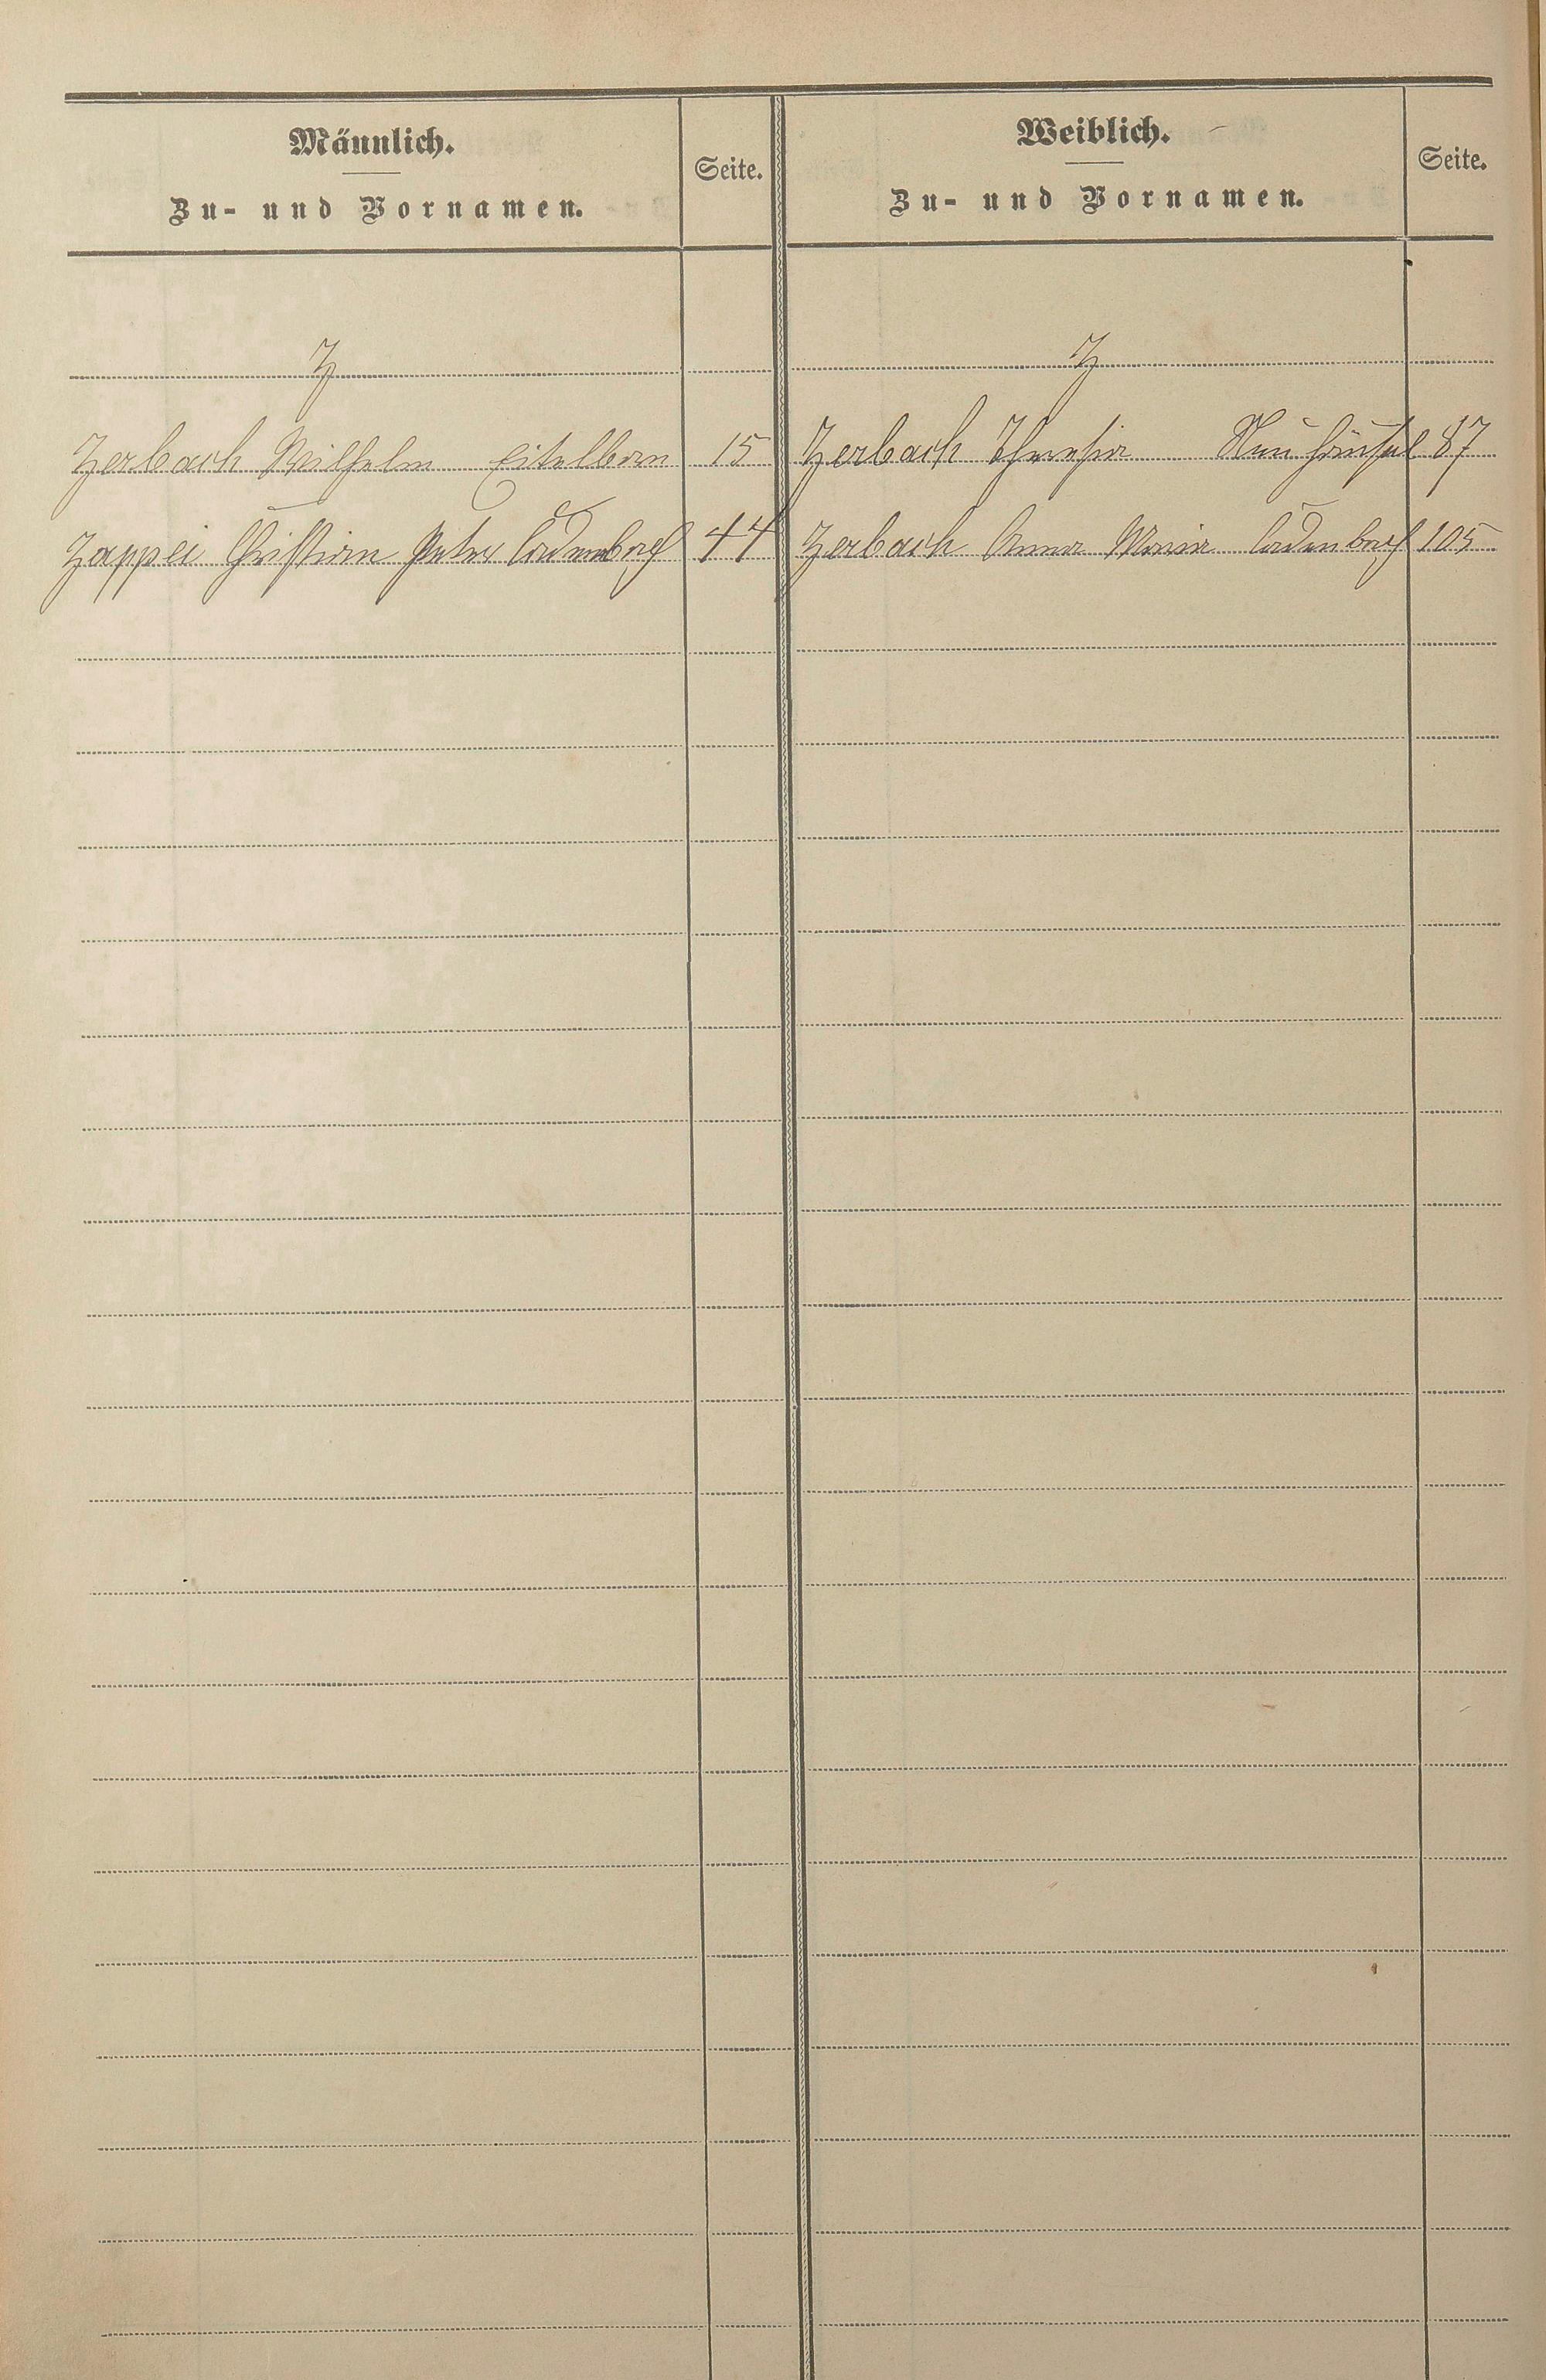 Männlich.
Zu- und Vornamen.
Seite.
Weiblich.
Zu- und Vornamen.
Seite.
Z
Z
Zerbach Wilhelm Eitelborn 15
Zerbach Theresia Neuhäusel 87
Zappei Christian Peter Cadenbach 44
Zerbach Anna Maria Cadenbach 105